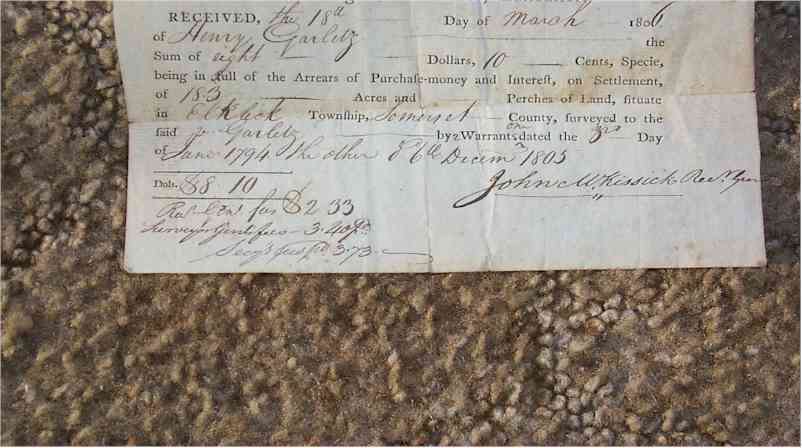 RECEIVED, the 18th Day of March 1806
of Henry Garletz the
Sum of eight Dollars, 10 Cents, Specie,
being in full of the Arrears of Purchaſe-money and Intereſt, on Settlement,
of 183 Acres and Perches of Land, ſituate
in Elklick Townſhip, Somerset County, ſurveyed to the
ſaid Garletz by 2 Warrants, one dated the 3rd Day
of June 1794 the other 6th Decem 1805
Dols. $8 10
John McKissick Recr Genl
Recr Genl fees $2 33
Surveyor Genl fees 3.40 pd
Secys fees pd 3.73